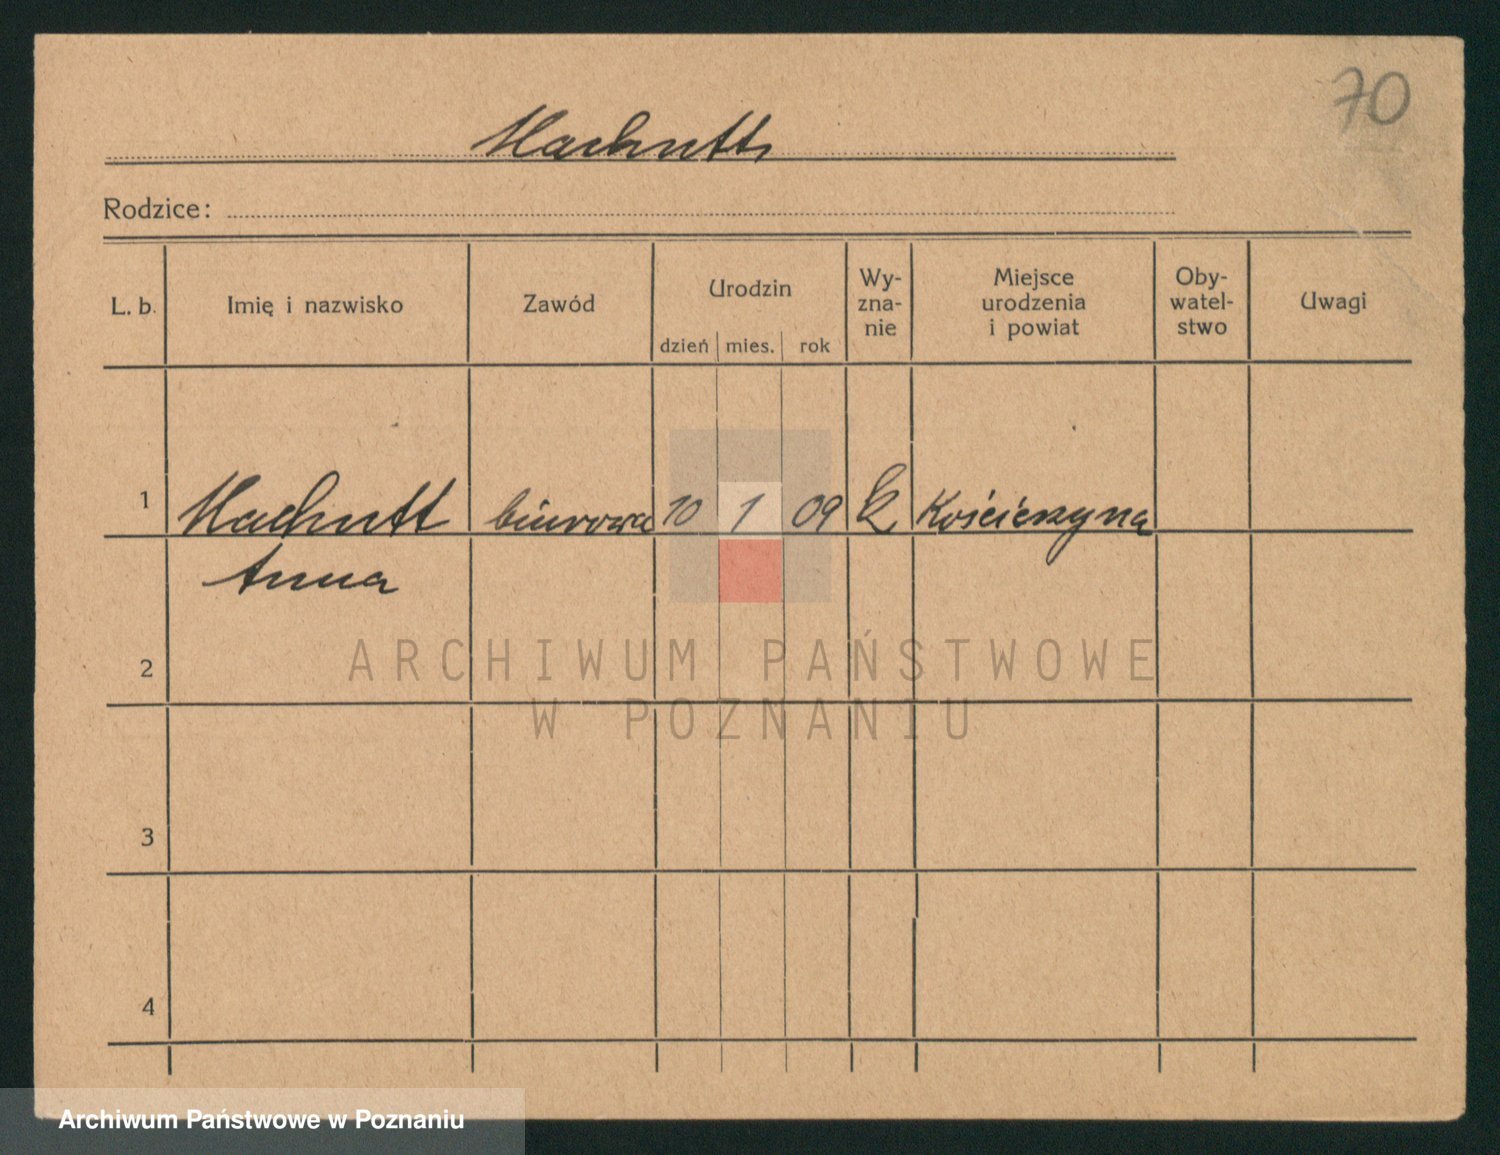 70
Machutt
Rodzice:
L. b.
Imię i nazwisko
Zawód
Urodzin
dzień
mies.
rok
Wy-
zna-
nie
Miejsce
urodzenia
i powiat
Oby-
watel-
stwo
Uwagi
1
Machutt
Anna
biurowa
10
1
09
k
Kościerzyna
2
3
4
ARCHIWUM PAŃSTWOWE
W POZNANIU
Archiwum Państwowe w Poznaniu